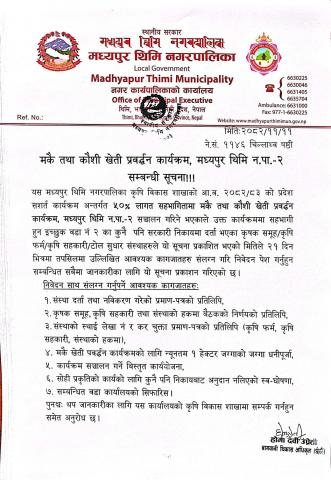 स्थानीय सरकार
मध्यपुर थिमि नगरपालिका
Local Government
Madhyapur Thimi Municipality
नगर कार्यपालिकाको कार्यालय
Office of Municipal Executive
थिमि, भक्तपुर, बागमती प्रदेश, नेपाल
Thimi, Bhaktapur, Bagmati Province, Nepal
6630225
6630046
6631405
6635704
Ambulance: 6631000
Fax: 977-1-6630225
Ref. No.:
http://www.madhyapurthimimun.gov.np
मिति: २०८२/११/११
ने.सं. ११४६ चिल्लाथ्व षष्ठी
मकै तथा कौशी खेती प्रवर्द्धन कार्यक्रम, मध्यपुर थिमि न.पा.-२
सम्बन्धी सूचना!!!
यस मध्यपुर थिमि नगरपालिका कृषि विकास शाखाको आ.व. २०८२/८३ को प्रदेश
सशर्त कार्यक्रम अन्तर्गत ५०% लागत सहभागितामा मकै तथा कौशी खेती प्रवर्द्धन
कार्यक्रम, मध्यपुर थिमि न.पा.-२ सञ्चालन गरिने भएकाले उक्त कार्यक्रममा सहभागी
हुन इच्छुक वडा नं २ का कुनै पनि सरकारी निकायमा दर्ता भएका कृषक समूह/कृषि
फर्म/कृषि सहकारी/टोल सुधार संस्थाहरुले यो सूचना प्रकाशित भएको मितिले २१ दिन
भित्रमा तपसिलमा उल्लिखित आवश्यक कागजातहरु संलग्न गरि निवेदन पेश गर्नुहुन
सम्बन्धित सबैमा जानकारीका लागि यो सूचना प्रकाशन गरिएको छ।
निवेदन साथ संलग्न गर्नुपर्ने आवश्यक कागजातहरु:
१. संस्था दर्ता तथा नविकरण गरेको प्रमाण-पत्रको प्रतिलिपि,
२. कृषक समूह, कृषि सहकारी तथा संस्थाको हकमा बैठकको निर्णयको प्रतिलिपि,
३. संस्थाको स्थाई लेखा नं र कर चुक्ता प्रमाण-पत्रको प्रतिलिपि (कृषि फर्म, कृषि
सहकारी, संस्थाको हकमा),
४. मकै खेती प्रवर्द्धन कार्यक्रमको लागि न्यूनतम १ हेक्टर जग्गाको जग्गा धनीपूर्जा,
५. कार्यक्रम सञ्चालन गर्ने विस्तृत कार्ययोजना,
६. सोही प्रकृतिको कार्यको लागि कुनै पनि निकायबाट अनुदान नलिएको स्व-घोषणा,
७. सम्बन्धित वडा कार्यालयको सिफारिस।
पुनश्च: थप जानकारीका लागि यस कार्यालयको कृषि विकास शाखामा सम्पर्क गर्नुहुन
समेत अनुरोध छ।